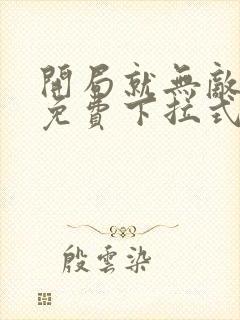 開局就無敵
免費下拉式
殷雲染